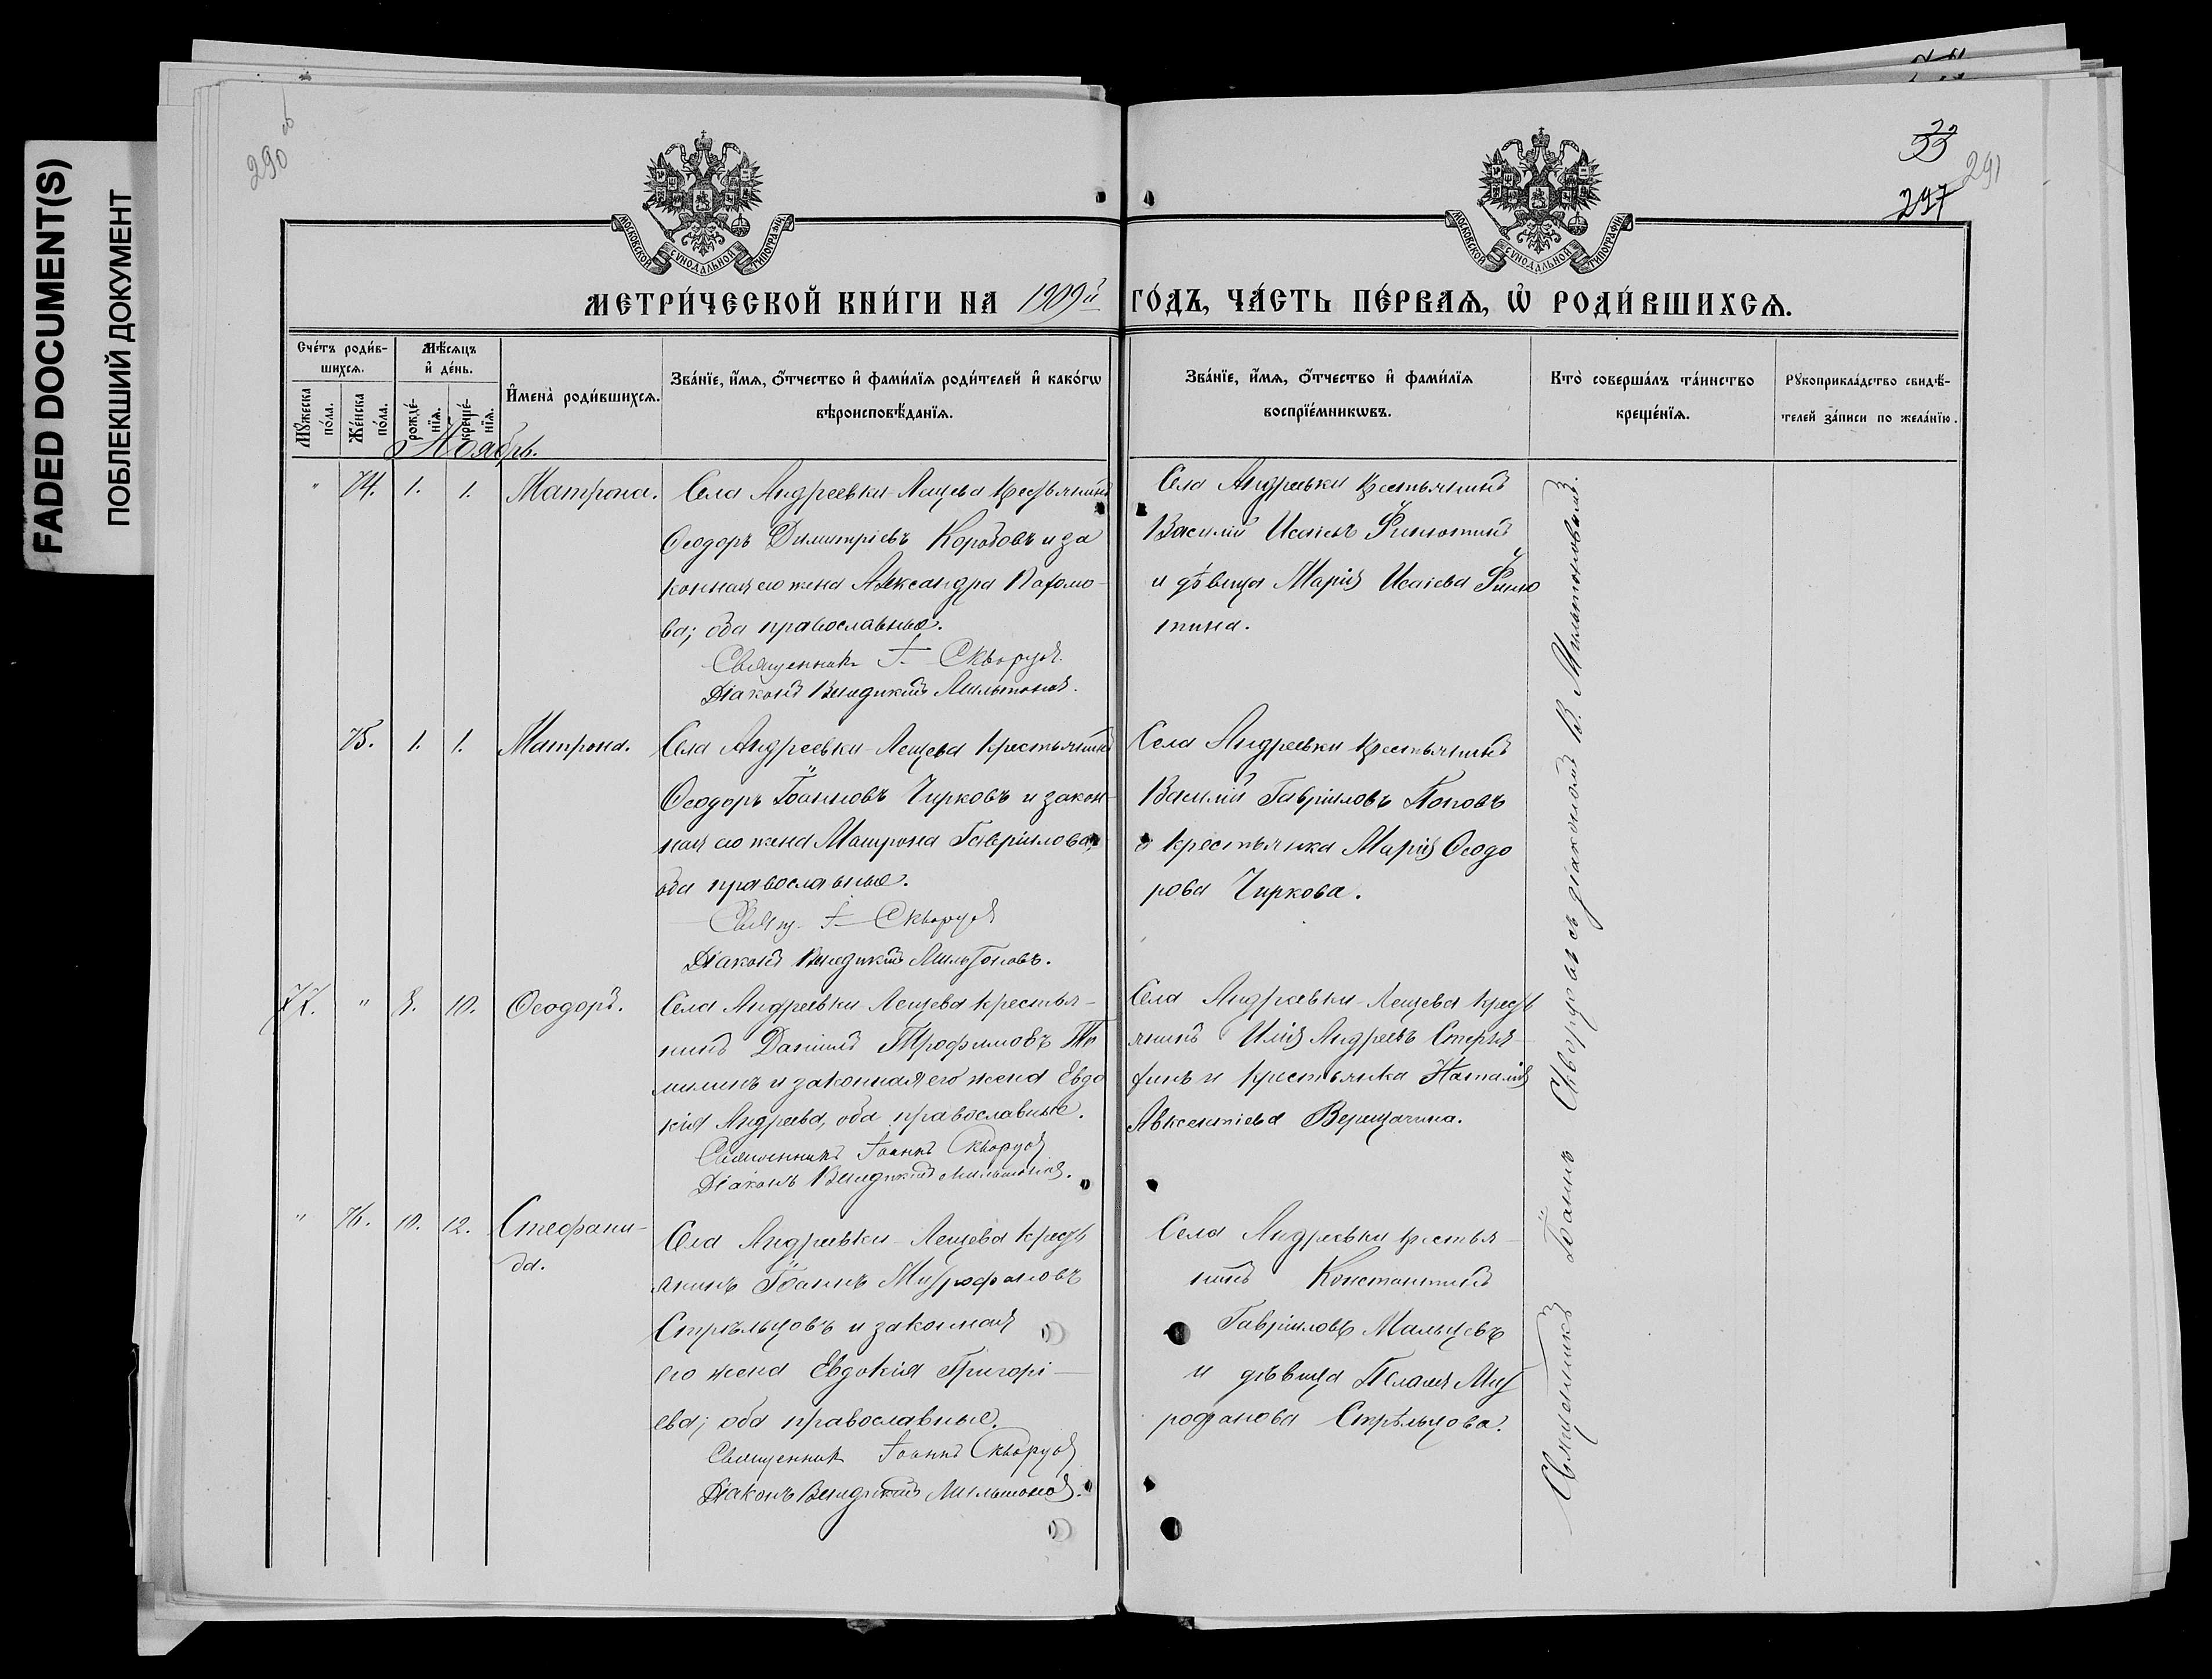 FADED DOCUMENT(S)
ПОБЛЕКШИЙ ДОКУМЕНТ
290 об
33
297
291
МОСКОВСКОЙ СѴНОДАЛЬНОЙ ТИПОГРАФІИ
МОСКОВСКОЙ СѴНОДАЛЬНОЙ ТИПОГРАФІИ
МЕТРИ́ЧЕСКОЙ КНИ́ГИ НА 1909й ГО́ДЪ, ЧА́СТЬ ПЕ́РВАЯ, Ѿ РОДИ́ВШИХСЯ.
Сче́тъ роди́в-
шихся.
Мѣ́сяцъ
и҆ де́нь.
Мꙋ́жеска
по́ла.
Же́нска
по́ла.
рожде́-
нїя.
креще́-
нїя.
И҆мена̀ роди́вшихся.
Зва́нїе, и҆́мя, ѻ҆́тчество и҆ фами́лїя роди́телей и҆ како́гѡ
вѣроисповѣ́данїя.
Зва́нїе, и҆́мя, ѻ҆́тчество и҆ фами́лїя
воспрїе́мникѡвъ.
Кто̀ соверша́лъ та́инство
креще́нїя.
Рꙋкоприкла́дство свидѣ́-
телей за́писи по жела́нїю.
Ноябрь.
" 74. 1. 1. Матрона.
Села Андреевки-Лещева крестьянинъ
Ѳеодоръ Димитріевъ Коробовъ и за
конная его жена Александра Пахомо-
ва; оба православные.
Священникъ І. Скворцов.
Діаконъ Венедиктъ Мильтонов.
Села Андреевки крестьянинъ
Василій Исаіевъ Филютинъ
и дѣвица Марія Исаіева Филю
тина.
75. 1. 1. Матрона.
Села Андреевки-Лещева крестьянинъ
Ѳеодоръ Іоанновъ Чирковъ и закон-
ная его жена Матрона Гавріилова,
оба православные.
Свящ. І. Скворцов
Діаконъ Венедиктъ Мильтоновъ.
Села Андреевки крестьянинъ
Василій Гавріиловъ Поповъ
и крестьянка Марія Ѳеодо
рова Чиркова.
77. " 8. 10. Ѳеодоръ.
Села Андреевки-Лещева крестья-
нинъ Даніилъ Трофимовъ То
милинъ и законная его жена Евдо
кія Андреева, оба православные.
Священникъ Іоаннъ Скворцов
Діаконъ Венедиктъ Мильтонов.
Села Андреевки-Лещева крестЬ
янинъ Илія Андреевъ
и крестьянка Наталія
Авксентіева Верещагина.
" 76. 10. 12. Стефани-
да.
Села Андреевки-Лещева кресть
янинъ Іоаннъ Митрофановъ
Стрѣльцовъ и законная
его жена Евдокія Григорі-
ева; оба православные.
Священник Іоаннъ Скворцов
Діаконъ Венедиктъ Мильтонов.
Села Андреевки крестья-
нинъ Константинъ
Гавріиловъ Мальцевъ
и дѣвица Пелагія Мит
рофанова Стрѣльцова.
Священникъ Іоаннъ Скворцовъ съ діакономъ В. Мильтоновымъ.